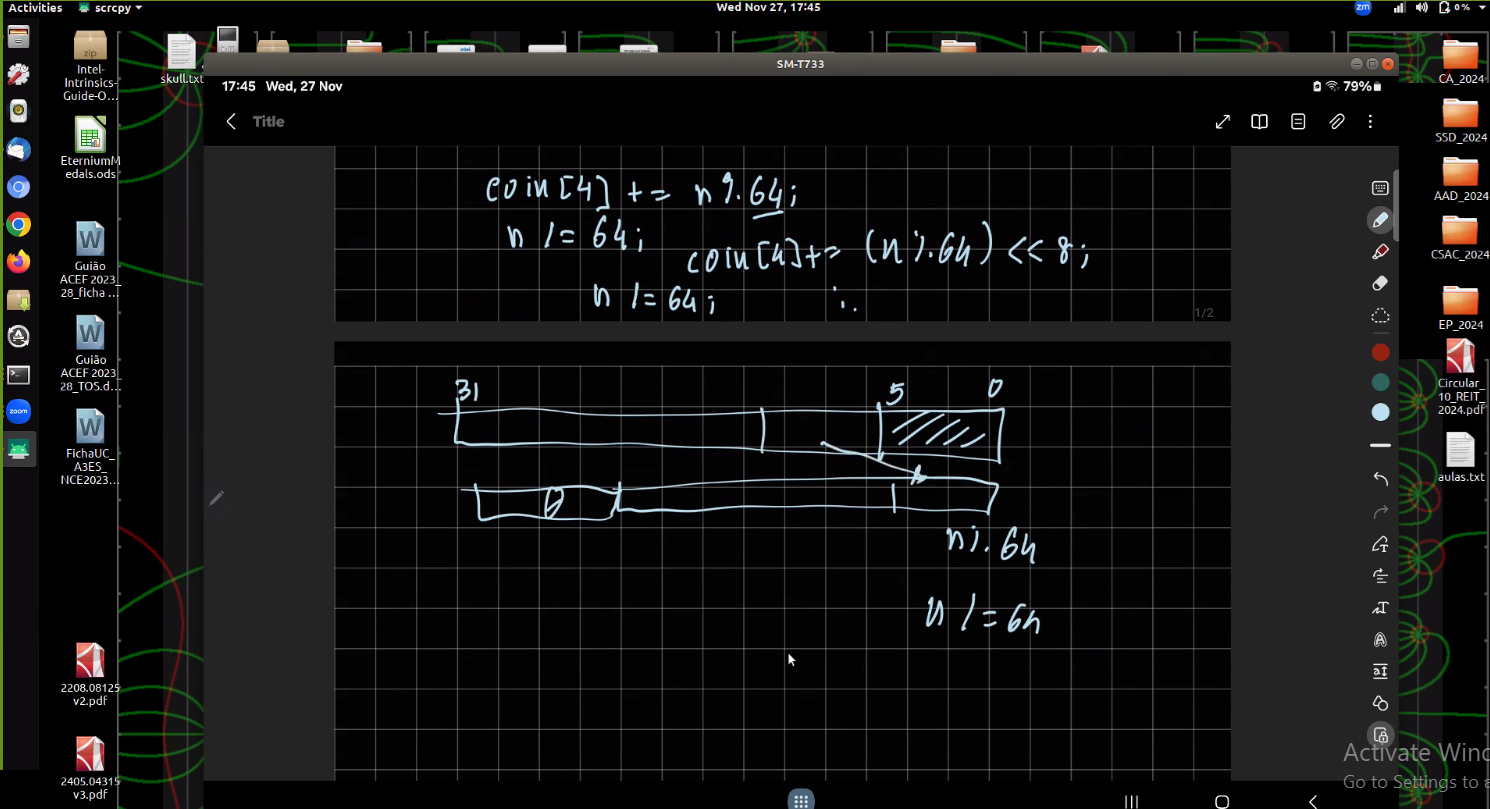 Activities scrcpy Wed Nov 27, 17:45 zm 0 %
zip
Intel-
Intrinsics-
Guide-O...
skull.txt
intel
EterniumM
edals.ods
W
Guião
ACEF 2023_
28_ficha ...
W
Guião
ACEF 2023_
28_TOS.d...
zoom
W
FichaUC_
A3ES_
NCE2023...
2208.08125
v2.pdf
2405.04315
v3.pdf
SM-T733
17:45 Wed, 27 Nov 79%
Title
coin[4] += n%64;
n /= 64;
coin[4] += (n%64) << 8;
n /= 64;
1/2
31 5 0
0
n%64
n /= 64
CA_2024
SSD_2024
AAD_2024
CSAC_2024
EP_2024
Circular_
10_REIT_
2024.pdf
aulas.txt
Activate Wind
Go to Settings to a